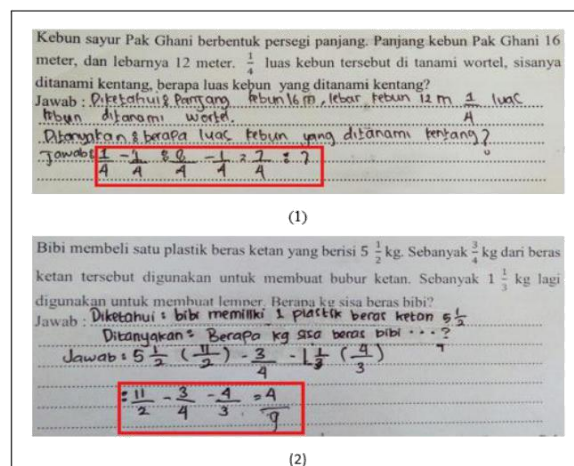 Kebun sayur Pak Ghani berbentuk persegi panjang. Panjang kebun Pak Ghani 16
meter, dan lebarnya 12 meter. 1/4 luas kebun tersebut di tanami wortel, sisanya
ditanami kentang, berapa luas kebun yang ditanami kentang?
Jawab : Diketahui : Panjang kebun 16 m, lebar kebun 12 m 1/4 luas
kebun ditanami wortel.
Ditanyakan : berapa luas kebun yang ditanami kentang?
Jawab : 1/4 - 1/4 : 8/4 - 1/4 = 7/4 : 7
(1)
Bibi membeli satu plastik beras ketan yang berisi 5 1/2 kg. Sebanyak 3/4 kg dari beras
ketan tersebut digunakan untuk membuat bubur ketan. Sebanyak 1 1/3 kg lagi
digunakan untuk membuat lemper. Berapa kg sisa beras bibi?
Jawab : Diketahui : bibi memiliki 1 plastik beras ketan 5 1/2
Ditanyakan : Berapa kg sisa beras bibi ...?
Jawab : 5 1/2 (11/2) - 3/4 - 1 1/3 (4/3)
: 11/2 - 3/4 - 4/3 = 4/9
(2)